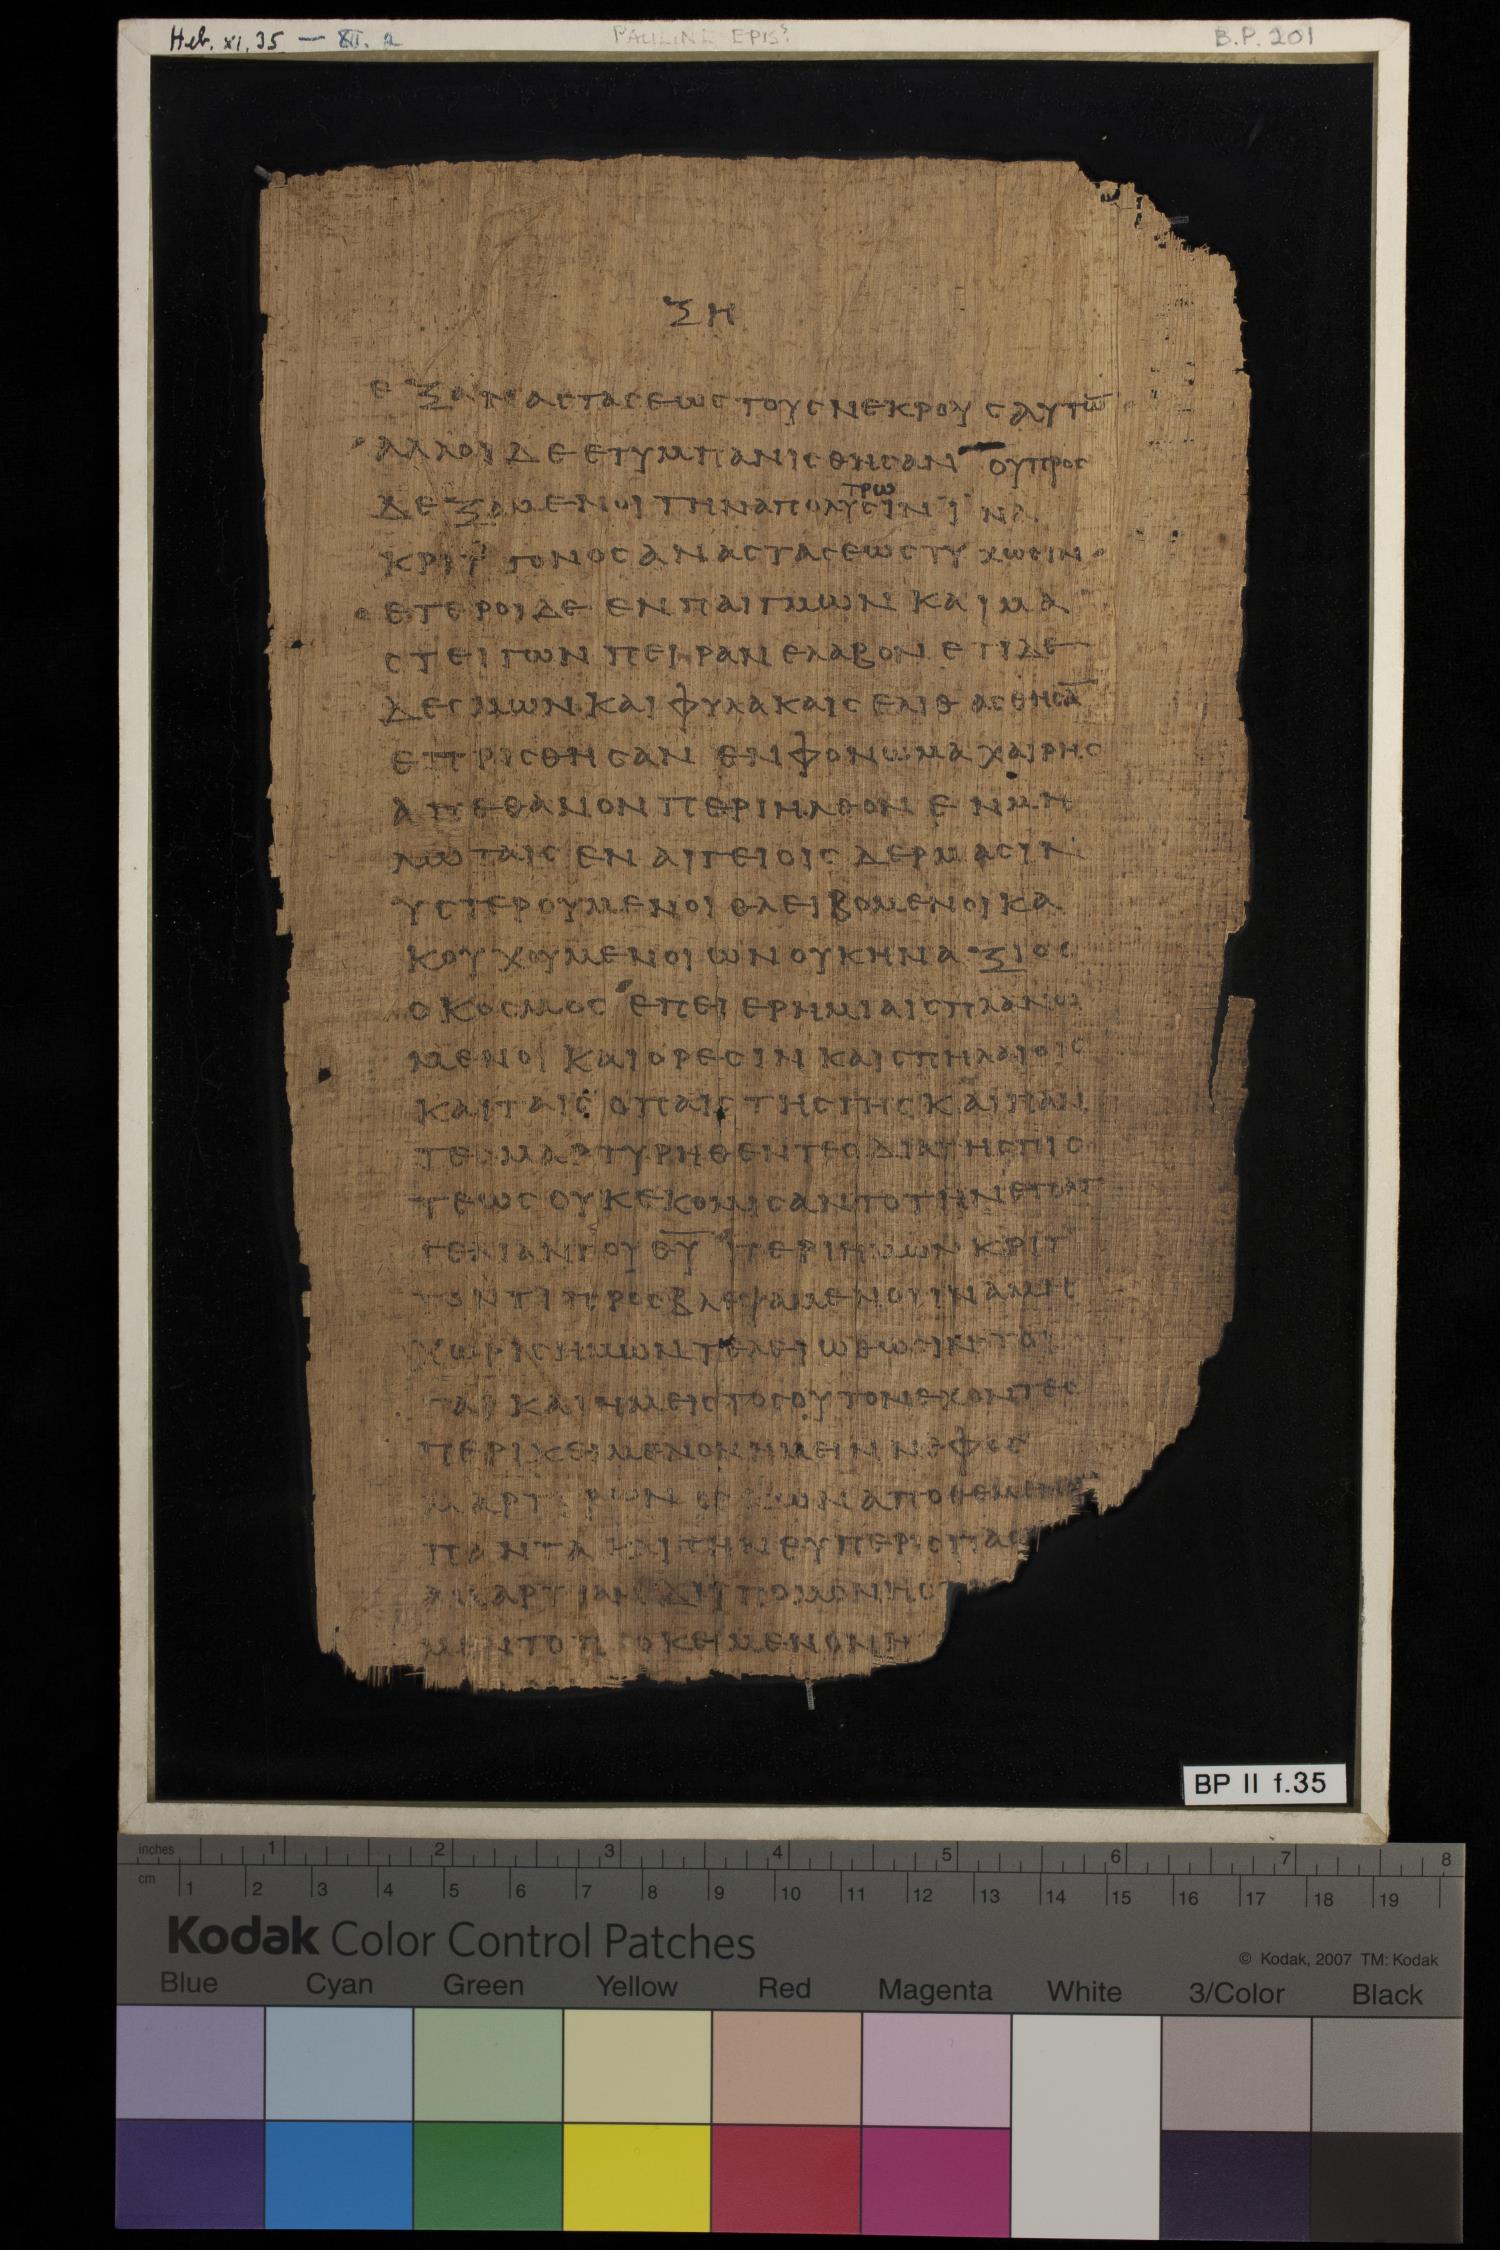 Heb. xi, 35 — XII. 2 PAULINE EPIS? B.P. 201
ξη
εξαναστασεωςτουςνεκρουςαυτω̅
αλλοιδεετυμπανισθησαν ουπρος
τρω
δεξαμενοιτηναπολυσινϊνα
κριττονοςαναστασεωςτυχωσιν
ετεροιδεενπαιγμωνκαιμα
στειγωνπειρανελαβονετιδε
δεσμωνκαιφυλακαιςελιθασθησα̅
επρισθησανενφονωμαχαιρης
απεθανονπεριηλθονενμη
λωταιςεναιγειοιςδερμασιν
υστερουμενοιθλειβομενοικα
κουχουμενοιωνουκηναξιος
οκοσμοςεπειερημιαιςπλανω
μενοικαιορεσινκαισπηλαιοις
καιταιςοπαιςτηςγηςκαιπαν
τεςμαρτυρηθεντεςδιατηςπισ
τεωςουκεκομισαντοτηνεπαγ
γελιαντουθ̅υ̅περιημωνκριτ
τοντιπροσβλεψαμενοιιναμη
χωριςημωντελειωθωσιν
καιημειςτοσουτονεχοντες
περικειμενονημειννεφος
μαρτυρων αποθεμενοι
παντακαιτηνευπερισπασ
αμαρτιανδιυπομονηςτ
μεντοπροκειμενονη
BP II f.35
inches 1 2 3 4 5 6 7 8
cm 1 2 3 4 5 6 7 8 9 10 11 12 13 14 15 16 17 18 19
Kodak Color Control Patches
© Kodak, 2007 TM: Kodak
Blue Cyan Green Yellow Red Magenta White 3/Color Black